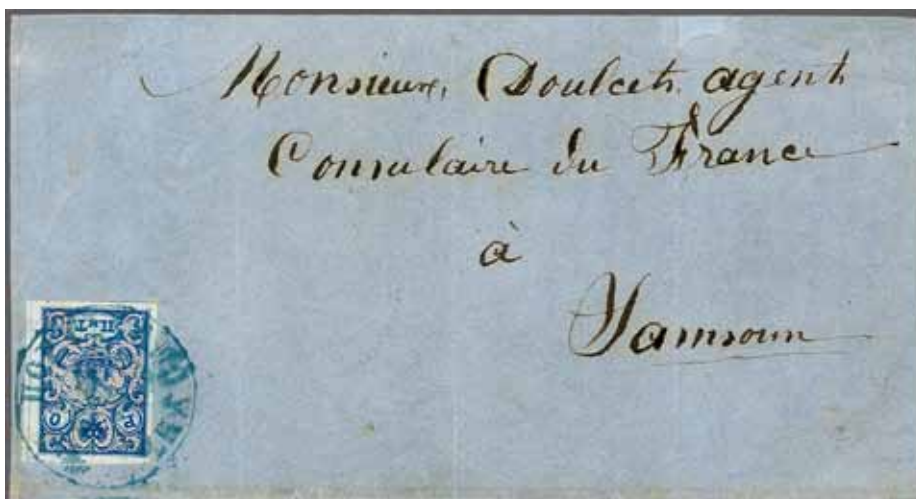 Monsieur, Doulcet, agent
Consulaire du France
à
Samsoun